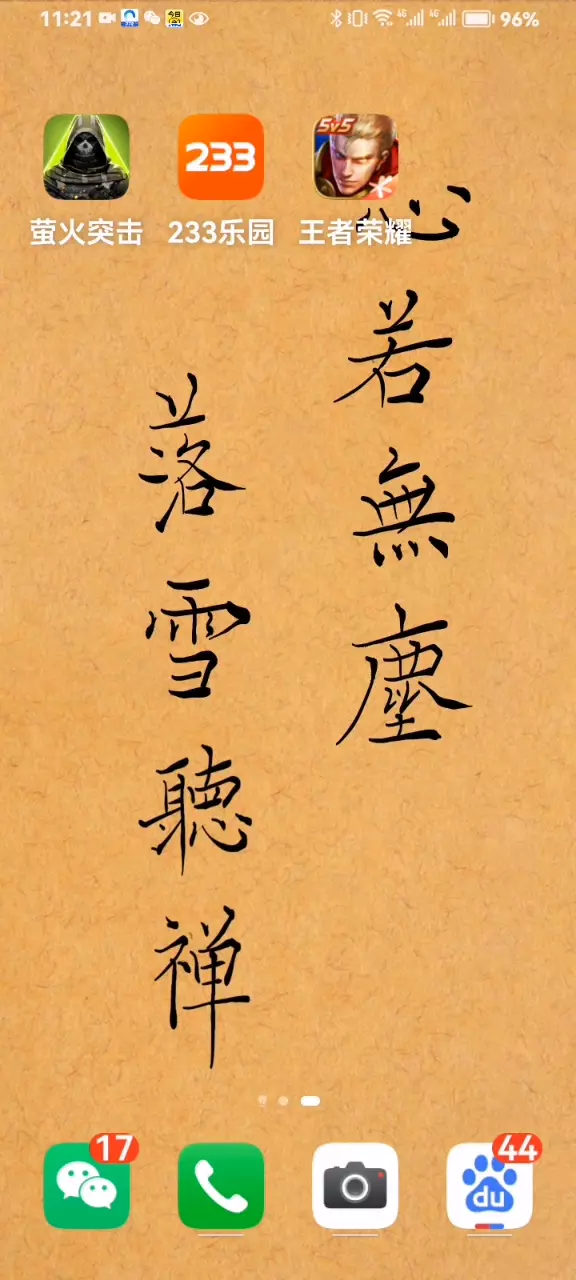 11:21
4G 4G 96%
5v5
233
萤火突击 233乐园 王者荣耀
心若無塵
落雪聽禅
17 44
du